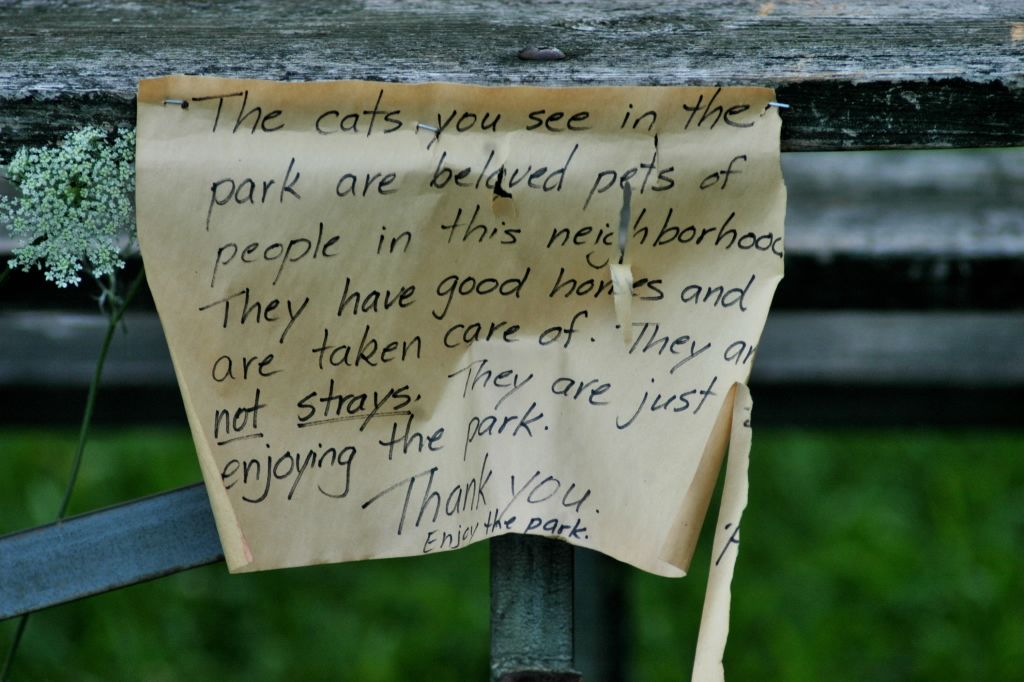 The cats you see in the
park are beloved pets of
people in this neighborhood
They have good homes and
are taken care of. They ar
not strays. They are just
enjoying the park.
Thank you.
Enjoy the park.